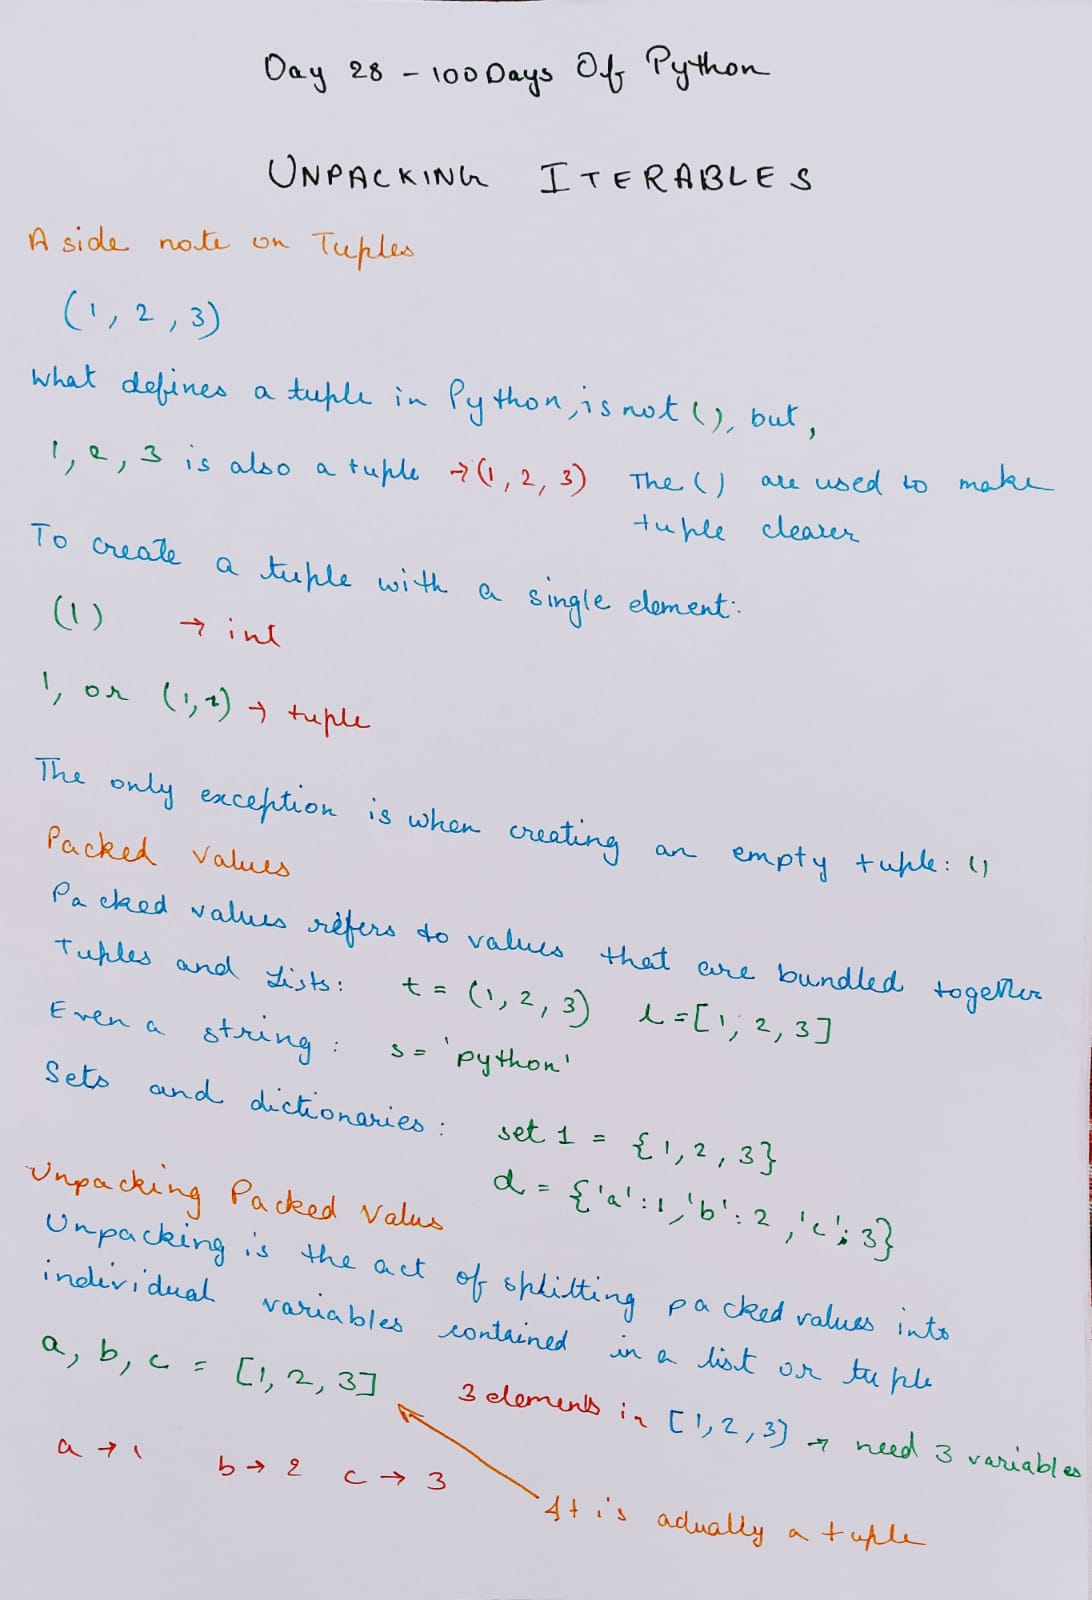 Day 28 - 100 Days Of Python
UNPACKING ITERABLES
A side note on Tuples
(1, 2, 3)
What defines a tuple in Python, is not (), but,
1, 2, 3 is also a tuple → (1, 2, 3) The () are used to make
tuple clearer
To create a tuple with a single element:
(1) → int
1, or (1, 2) → tuple
The only exception is when creating an empty tuple: ()
Packed Values
Packed values refers to values that are bundled together
Tuples and Lists: t = (1, 2, 3) L = [1, 2, 3]
Even a string: s = 'python'
Sets and dictionaries: set 1 = {1, 2, 3}
d = {'a': 1, 'b': 2, 'c': 3}
Unpacking Packed Valus
Unpacking is the act of splitting packed values into
individual variables contained in a list or tuple
a, b, c = [1, 2, 3] 3 elements in [1, 2, 3] → need 3 variables
a → 1 b → 2 c → 3
It is actually a tuple